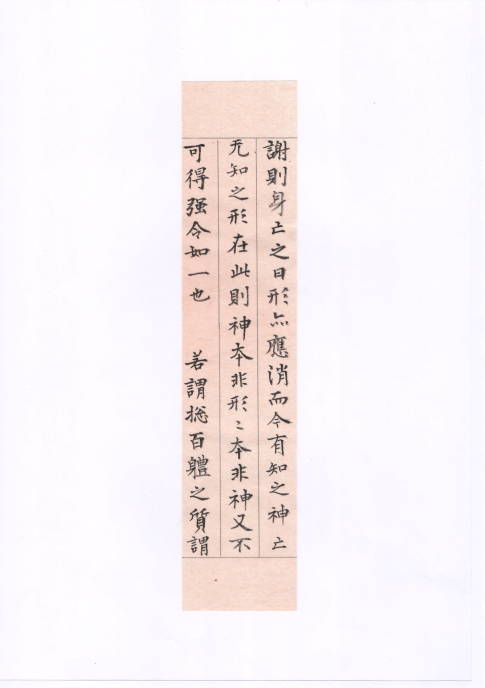 謝則身亡之日形亦應消而今有知之神亡
无知之形在此則神本非形〻本非神又不
可得强令如一也　若謂捴百軆之質謂